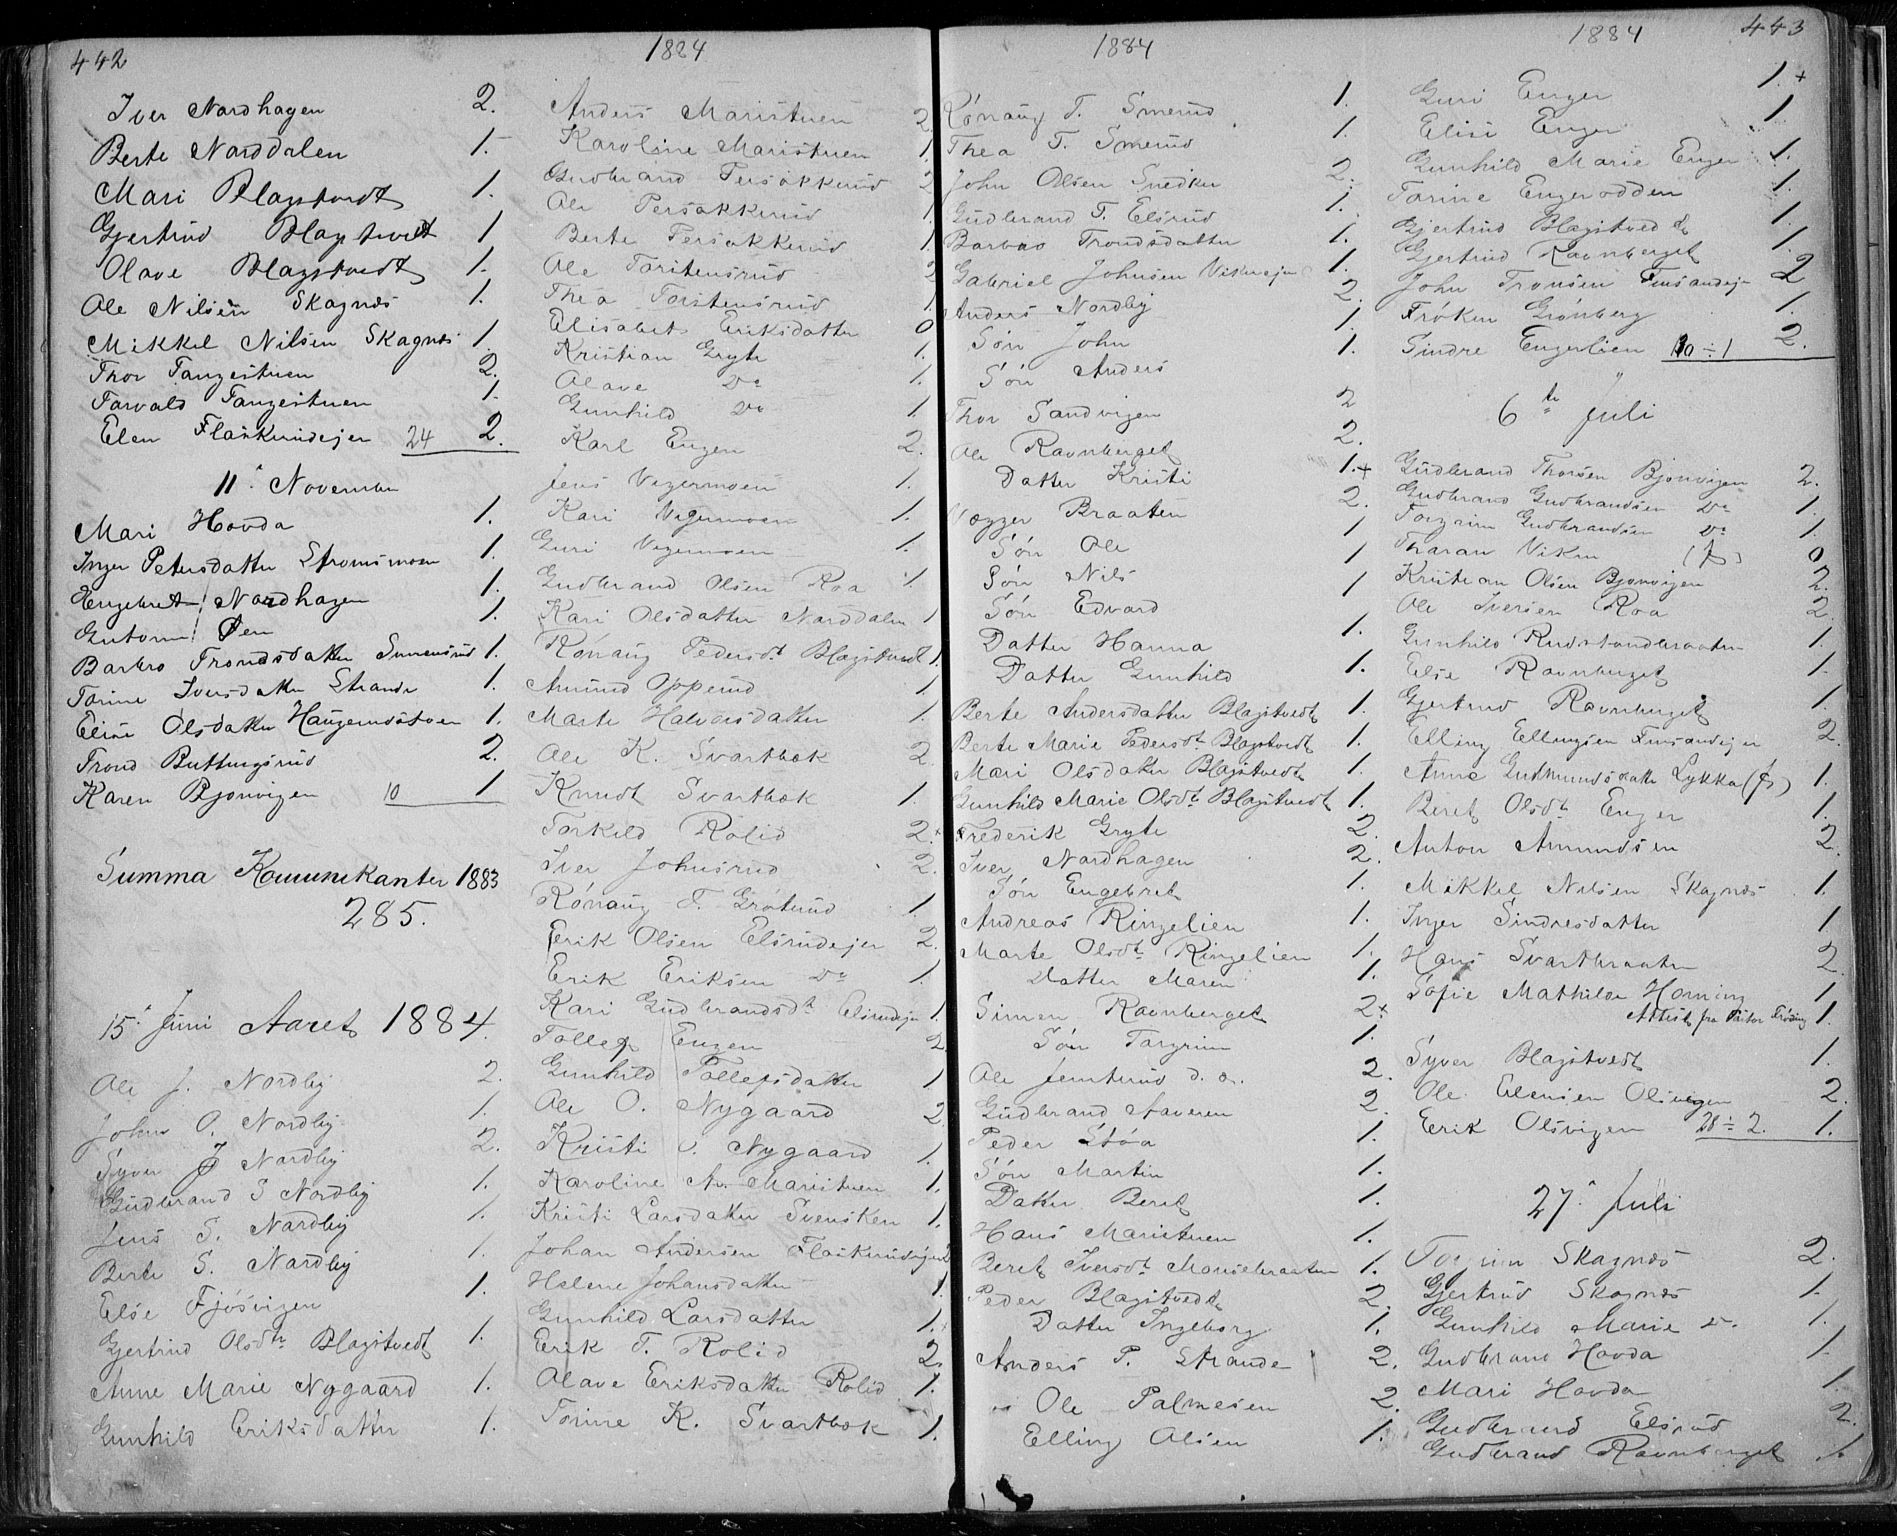 442
1884
Iver Nordhagen 2.
Berte Norddalen 1.
Mari Blagstvedt 1.
Gjertrud Blagstvedt 1
Olave Blagstvedt 1.
Ole Nilsen Skagnæs 1.
Mikkel Nilsen Skagnæs 1.
Thor Tangestuen 2.
Torvald Tangestuen 1.
Elen Flaskerudejer 24 2.
11te November
Mari Hovda 1.
Inger Petersdatter Strømsmoen 1.
Engebret Nordhagen 1.
Gutorm Øen 1.
Barbro Trondsdatter 1.
Torine Iversdatter Strande 1.
Elise Olsdatter Haugerudstuen 1.
Trond Buttingsrud 2.
Karen Bjonvigen 10 1
Summa Kommunikanter 1883
285.
15de Juni Aaret 1884.
Ole J. Nordby 2.
John O. Nordby 1.
Syver J Nordby 2.
Gudbrand S Nordby 1.
Jens S. Nordby 1.
Berte S. Nordby 1.
Else Fjøsvigen 1.
Gjertrud Olsdtr Blagstvedt 1.
Anne Marie Nygaard 1.
Gunhild Eriksdatter 1.
Anders Maristuen 2
Karoline Maristuen 1.
Gudbrand Persøkkerud 2
Ole Persøkkerud 1
Berte Persøkkerud 1
Ole Torstensrud 2
Thea Torstensrud 1
Elisabet Eriksdatter 0
Kristian Gryte 1.
Olave Do 1.
Gunhild Do 1
Karl Engen 2.
Jens Vegermoen 1.
Kari Vegermoen 1.
Guri Vegermoen 1.
Gudbrand Olsen Roa 1
Kari Olsdatter Norddalen 1
Rønaug Pedersdt Blagstvedt 1.
Amund Opperud 1
Marte Halvorsdatter 1.
Ole K. Svartbæk 2
Knudt Svartbæk 1.
Torkild Rolid 2+
Iver Johnsrud 2.
Rønaug T. Grøtrud 1
Erik Olsen Elsrudejer 2.
Erik Eriksen Do 1.
Kari Gudbrandsdtr Elsrudejer 1
Tollef Engen 2
Gunhild Tollefsdatter 1
Ole O. Nygaard 2
Kristi O. Nygaard 1.
Karoline A. Maristuen 1.
Kristi Larsdatter Svensken 1.
Johan Andersen Flaskerudejer 2
Helene Johansdatter 1.
Gunhild Larsdatter 1.+
Erik T. Rolid 2.
Olave Eriksdatter Rolid 1.
Torine K. Svartbæk 1.
1884
1884
443
Rønaug T. Smerud 1.
Thea T. Smerud 1.
John Olsen Snedker 2.
Gudbrand T. Elsrud 1.
Barbro Trondsdatter 1.
Gabriel Johnsen Vikerejer 1.
Anders Nordby 2.
Søn John 1.
Søn Anders 1.
Thor Sandvigen 2
Ole Ravnberget 2.
Datter Kristi 1.+
Vegger Braaten 2.
Søn Ole 1
Søn Nils 1
Søn Edvard 1
Datter Hanna 1.
Datter Gunhild 1.
Berte Andersdatter Blagstvedt 1.
Berte Marie Pedersdt Blagstvedt 1.
Mari Olsdatter Blagstvedt 1.
Gunhild Marie Olsdt Blagstvedt 1.
Frederik Gryte 2.
Iver Nordhagen 2.
Søn Engebret 1.
Andreas Ringelien 1.
Marte Olsdt Ringelien 1.
Datter Maren 1.
Simen Ravnberget 2+
Søn Torgrim 1.
Ole Jemterud d. æ. 2.
Gudbrand Aaveren 2.
Peder Støa 1.
Søn Martin 1.
Datter Beret 1.
Hans Maristuen 1.
Beret Iversdt Monsebraaten 1.
Peder Blagstvedt 2.
Datter Ingeborg 1.
Anders P. Strande 2.
Ole Palmesen 2.
Elling Olsen 1.
Guri Enger 1.+
Elise Enger 1
Gunhild Marie Enger 1.
Torine Engerodden 1.
Gjertrud Blagstvedt 1.
Gjertrud Ravnberget 1.
John Tronsen Finsandejer 2
Frøken Grønberg 1.
Sindre Engerlien ÷ 1 2.
6te Juli
Gudbrand Thorsen Bjonvigen 2.
Gudbrand Gudbrandsen Do 1.
Torgrim Gudbrandsen Do 1.
Tharan Viken (f) 0
Kristian Olsen Bjonvigen 2.
Ole Iversen Roa 2
Gunhild Rudstandbraaten 1.
Else Ravnberget 1.
Gjertrud Ravnberget 1.
Elling Ellingsen Finsandejer 2.
Anne Gudmundsdatter Lykkja (fs) 1.
Beret Olsdt Enger 1.
Anton Amundsen 2.
Mikkel Nilsen Skagnæs 1.
Inger Sindresdatter 1
Hans Svartbraaten 2.
Sofie Mathilde Horning 1
Attest fra Pastor Frøding 1.
Syver Blagstvedt 1.
Ole Elensen Olsvigen 2.
Erik Olsvigen 28 ÷ 2. 1.
27de Juli
Torgrim Skagnæs 2.
Gjertrud Skagnæs 1.
Gunhild Marie Do 1.
Gudbrand Hovda 1
Mari Hovda 1
Gudbrand Elsrud 2.
Gudbrand Ravnberget 1.